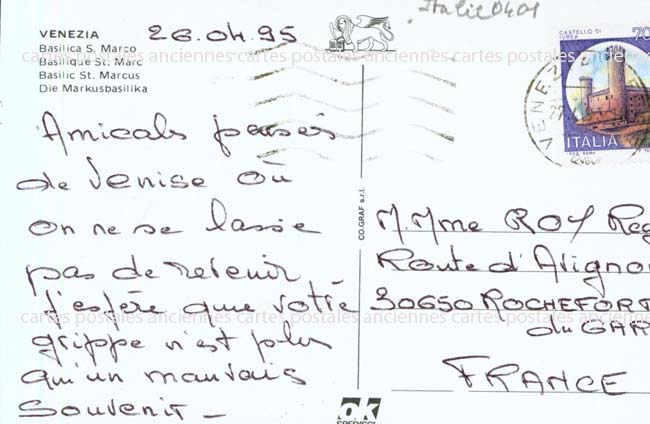 VENEZIA
Basilica S. Marco
Basilique St. Marc
Basilic St. Marcus
Die Markusbasilika
26.04.95
Italie 0401
CASTELLO DI IVREA
70
ITALIA
VENEZ
Amicals pensées
de Venise où
on ne se lasse
pas de revenir
J'espère que votre
grippe n'est plus
qu'un mauvais
souvenir -
CO.GRAF s.r.l.
M. Mme ROY Reg
Route d'Avigno
30650 ROCHEFORT
du GAR
FRANCE
ok
cartes postales anciennes cartes postales anciennes cartes postales anciennes cartes postales
cartes postales anciennes cartes postales anciennes cartes postales anciennes cartes postales